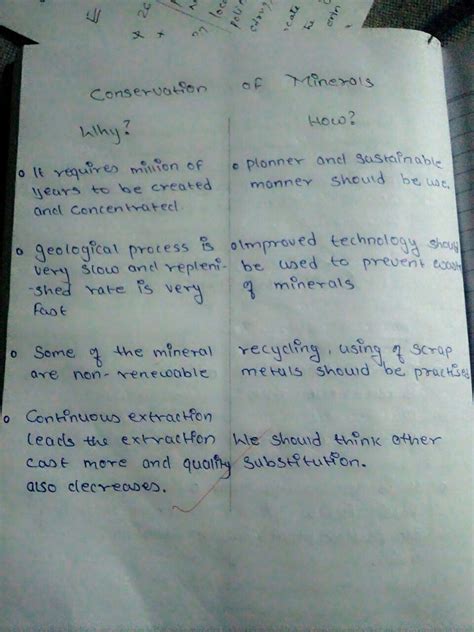 Conservation of Minerals
Why?
o It requires million of
years to be created
and concentrated.
o geological process is
very slow and repleni-
-shed rate is very
fast
o Some of the mineral
are non-renewable
o Continuous extraction
leads the extraction
cast more and quality
also decreases.
How?
o planner and sustainable
manner should be use.
o Improved technology should
be used to prevent waste
of minerals
recycling, using of scrap
metals should be practises
We should think other
substitution.